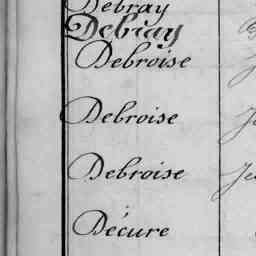 Debray
Debray
Debroise
Debroise
Debroise
Décure